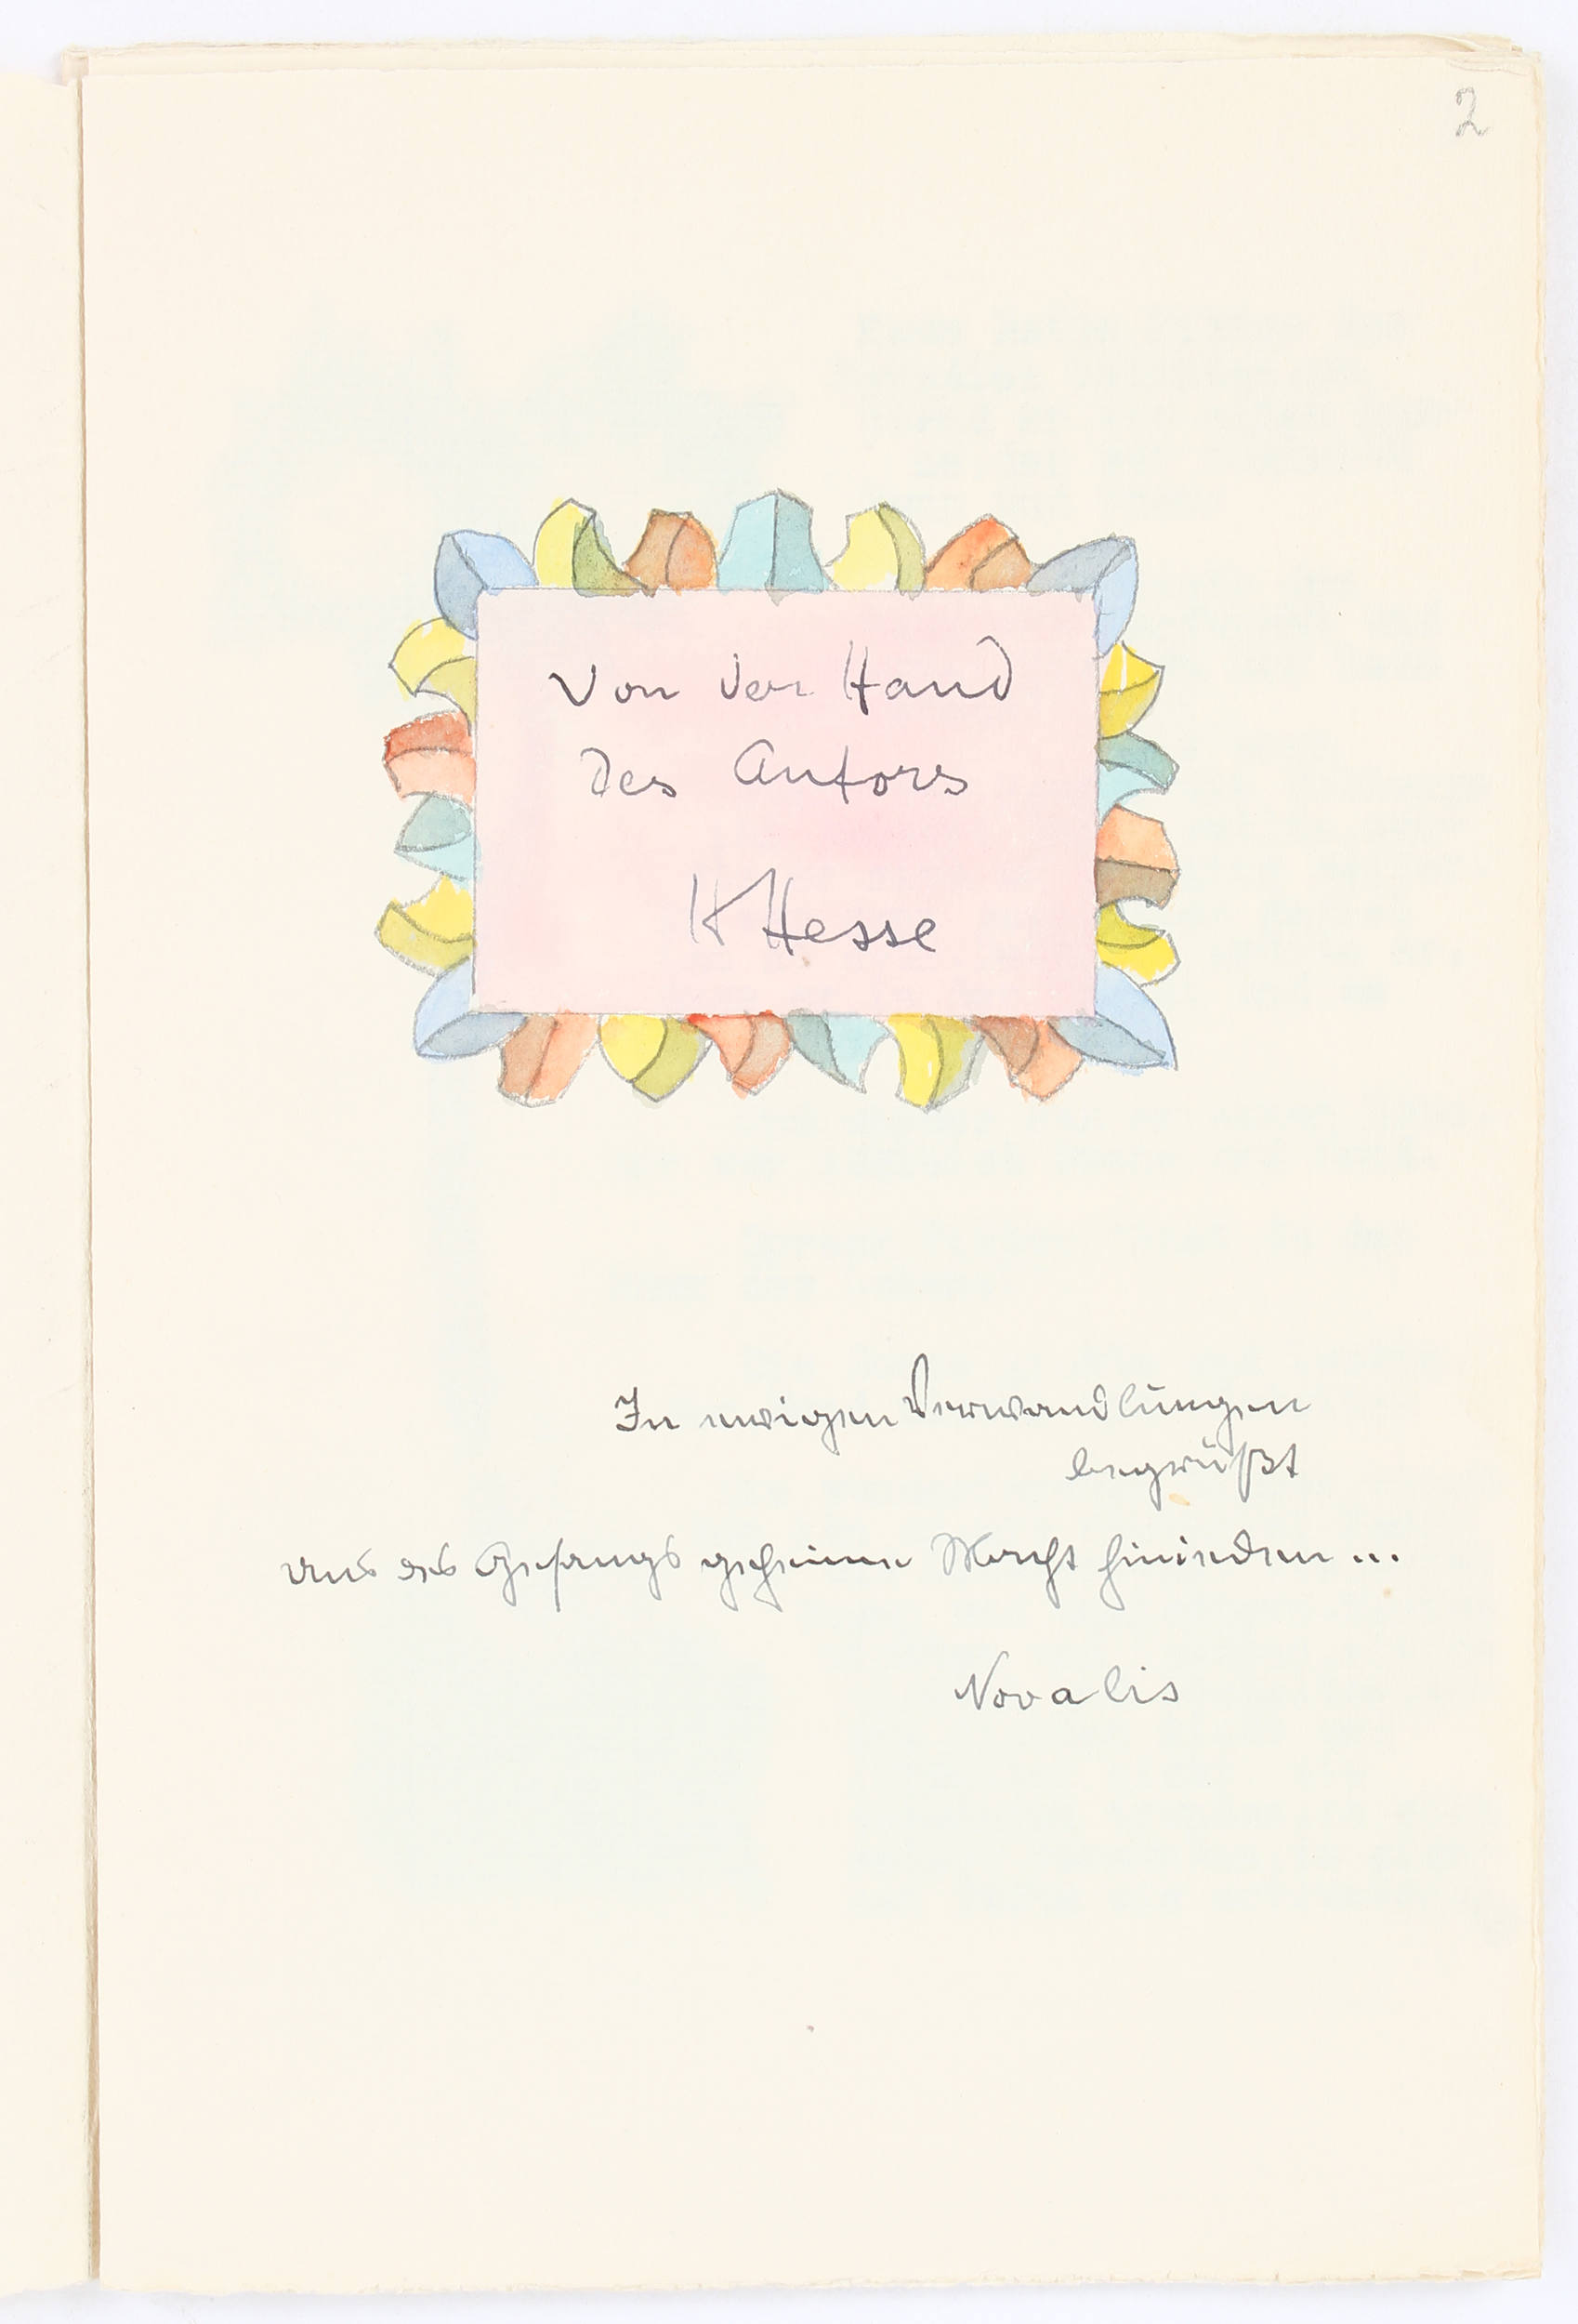 2
Von der Hand
des Autors
H Hesse
In ewigen Verwandlungen
begrüßt
uns des Gesangs geheime Macht hinieden ...
Novalis